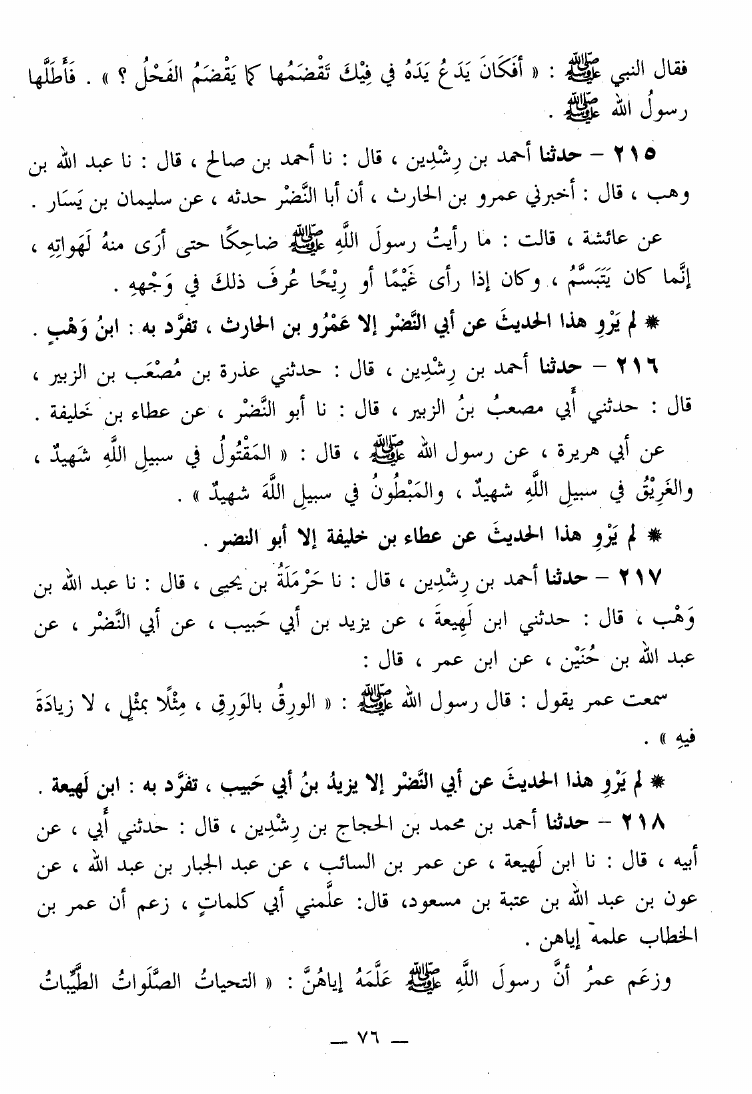 فقال النبي ﷺ : « أفَكَانَ يَدَعُ يَدَهُ في فِيْكَ تَقْضَمُها كما يَقْضَمُ الفَحْلُ ؟ » . فَأَطَلَّها
رسولُ الله ﷺ .
٢١٥ – حدثنا أحمد بن رِشْدِين ، قال : نا أحمد بن صالح ، قال : نا عبد الله بن
وهب ، قال : أخبرني عمرو بن الحارث ، أن أبا النَّضْر حدثه ، عن سليمان بن يَسَار .
عن عائشة ، قالت : ما رأيتُ رسولَ اللَّهِ ﷺ ضاحِكًا حتى أرَى منهُ لَهَواتِهِ ،
إنَّما كان يَتَبَسَّمُ ، وكان إذا رأى غَيْمًا أو رِيْحًا عُرفَ ذلكَ في وَجْههِ .
* لم يَرْوِ هذا الحديثَ عن أبي النَّضْر إلا عَمْرُو بن الحارث ، تفرَّد به : ابنُ وَهْبٍ .
٢١٦ – حدثنا أحمد بن رِشْدِين ، قال : حدثني عذرة بن مُصْعَب بن الزبير ،
قال : حدثني أَبي مصعبُ بنُ الزبير ، قال : نا أبو النَّضْر ، عن عطاء بن خَليفة .
عن أبي هريرة ، عن رسول الله ﷺ ، قال : « المَقْتُولُ في سبيل اللَّهِ شَهيدٌ ،
والغَرِيْقُ في سبيلِ اللَّهِ شهيدٌ ، والمَبْطُونُ في سبيلِ اللَّهَ شهيدٌ » .
* لم يَرْوِ هذا الحديثَ عن عطاء بن خليفة إلا أبو النضر .
٢١٧ – حدثنا أحمد بن رِشْدِين ، قال : نا حَرْمَلَةُ بن يحيى ، قال : نا عبد الله بن
وَهْب ، قال : حدثني ابن لَهِيعةَ ، عن يزيد بن أبي حَبيب ، عن أبي النَّضْر ، عن
عبد الله بن حُنَيْن ، عن ابن عمر ، قال :
سمعت عمر يقول : قال رسول الله ﷺ : « الورِقُ بالوَرِقِ ، مِثْلًا بمثْلٍ ، لا زيادَةَ
فيهِ » .
* لم يَرْوِ هذا الحديثَ عن أبي النَّضْر إلا يزيدُ بنُ أبي حَبيب ، تفرَّد به : ابن لَهيعة .
٢١٨ – حدثنا أحمد بن محمد بن الحجاج بن رِشْدِين ، قال : حدثني أَبي ، عن
أبيه ، قال : نا ابن لَهيعة ، عن عمر بن السائب ، عن عبد الجبار بن عبد الله ، عن
عون بن عبد الله بن عتبة بن مسعود، قال: علَّمني أبي كلماتٍ ، زعم أن عمر بن
الخطاب علمه إياهن .
وزعَم عمرُ أنَّ رسولَ اللَّهِ ﷺ عَلَّمَهُ إياهُنَّ : « التحياتُ الصَّلَواتُ الطَّيِّباتُ
— ٧٦ —